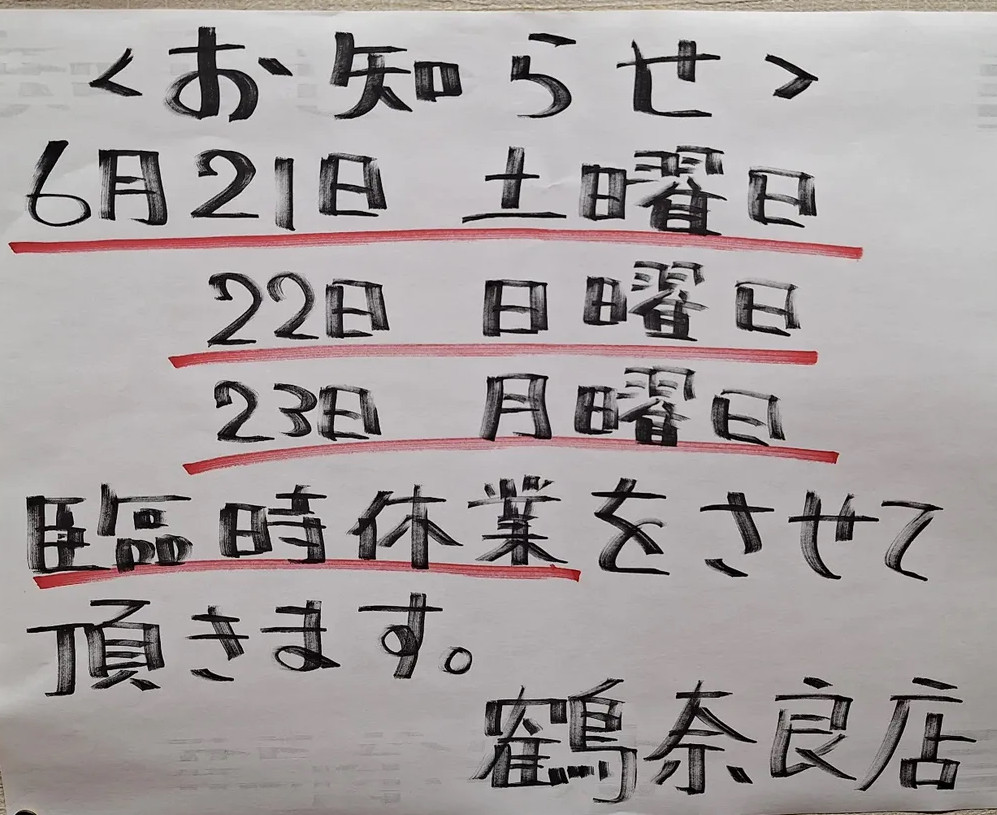 <お知らせ>
6月21日 土曜日
22日 日曜日
23日 月曜日
臨時休業をさせて
頂きます。
鶴奈良店